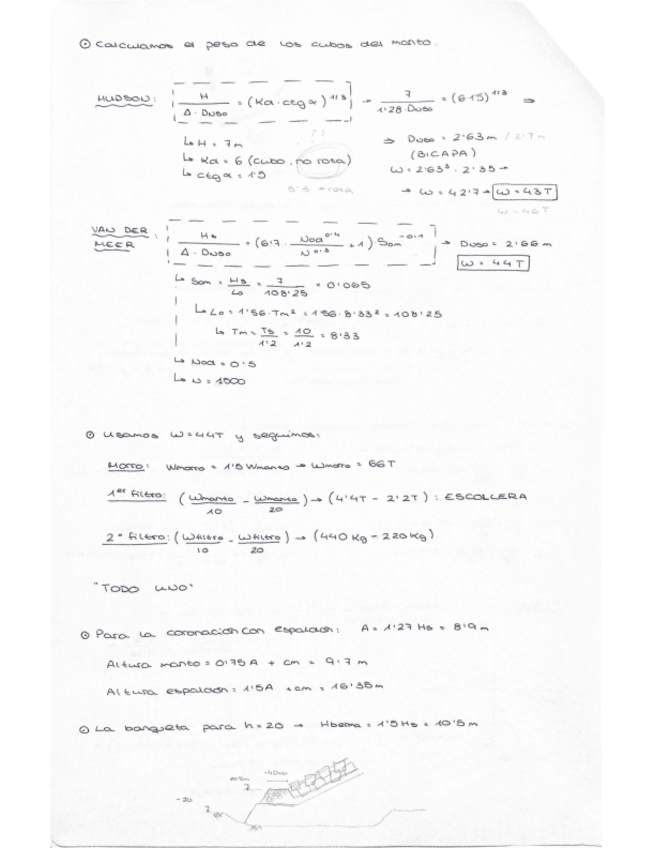 ⊙ Calculamos el peso de los cubos del manto.
HUDSON: H / Δ·Dn50 = (Kd·ctgα)^1/3 → 7 / 1'28·Dn50 = (6·1'5)^1/3 ⇒
↳ H = 7m
⇒ Dn50 = 2'63m / 2'7m
↳ Kd = 6 (cubo, no rota)
(BICAPA)
↳ ctgα = 1'5
W = 2'63³ · 2'35 →
→ W = 42'7 → W = 43T
W = 46T
VAN DER MEER: Hs / Δ·Dn50 = (6'7 · Nod^0'4 / N^0'3 + 1) · Som^-0'1 → Dn50 = 2'66m
W = 44T
↳ Som = Hs / Lo = 7 / 108'25 = 0'065
↳ Lo = 1'56·Tm² = 1'56·8'33² = 108'25
↳ Tm = Ts / 1'2 = 10 / 1'2 = 8'33
↳ Nod = 0'5
↳ N = 1500
⊙ Usamos W = 44T y seguimos:
Morro: Wmorro = 1'5 Wmanto → Wmorro = 66T
1er filtro: (Wmanto / 10 - Wmanto / 20) → (4'4T - 2'2T) : ESCOLLERA
2º filtro: (Wfiltro / 10 - Wfiltro / 20) → (440 Kg - 220 Kg)
"TODO UNO"
⊙ Para la coronación con espaldón: A = 1'27 Hs = 8'9m
Altura manto = 0'75A + cm = 9'7 m
Altura espaldón = 1'5A + cm = 16'35m
⊙ La banqueta para h = 20 → Hberma = 1'5Hs = 10'5m
-20